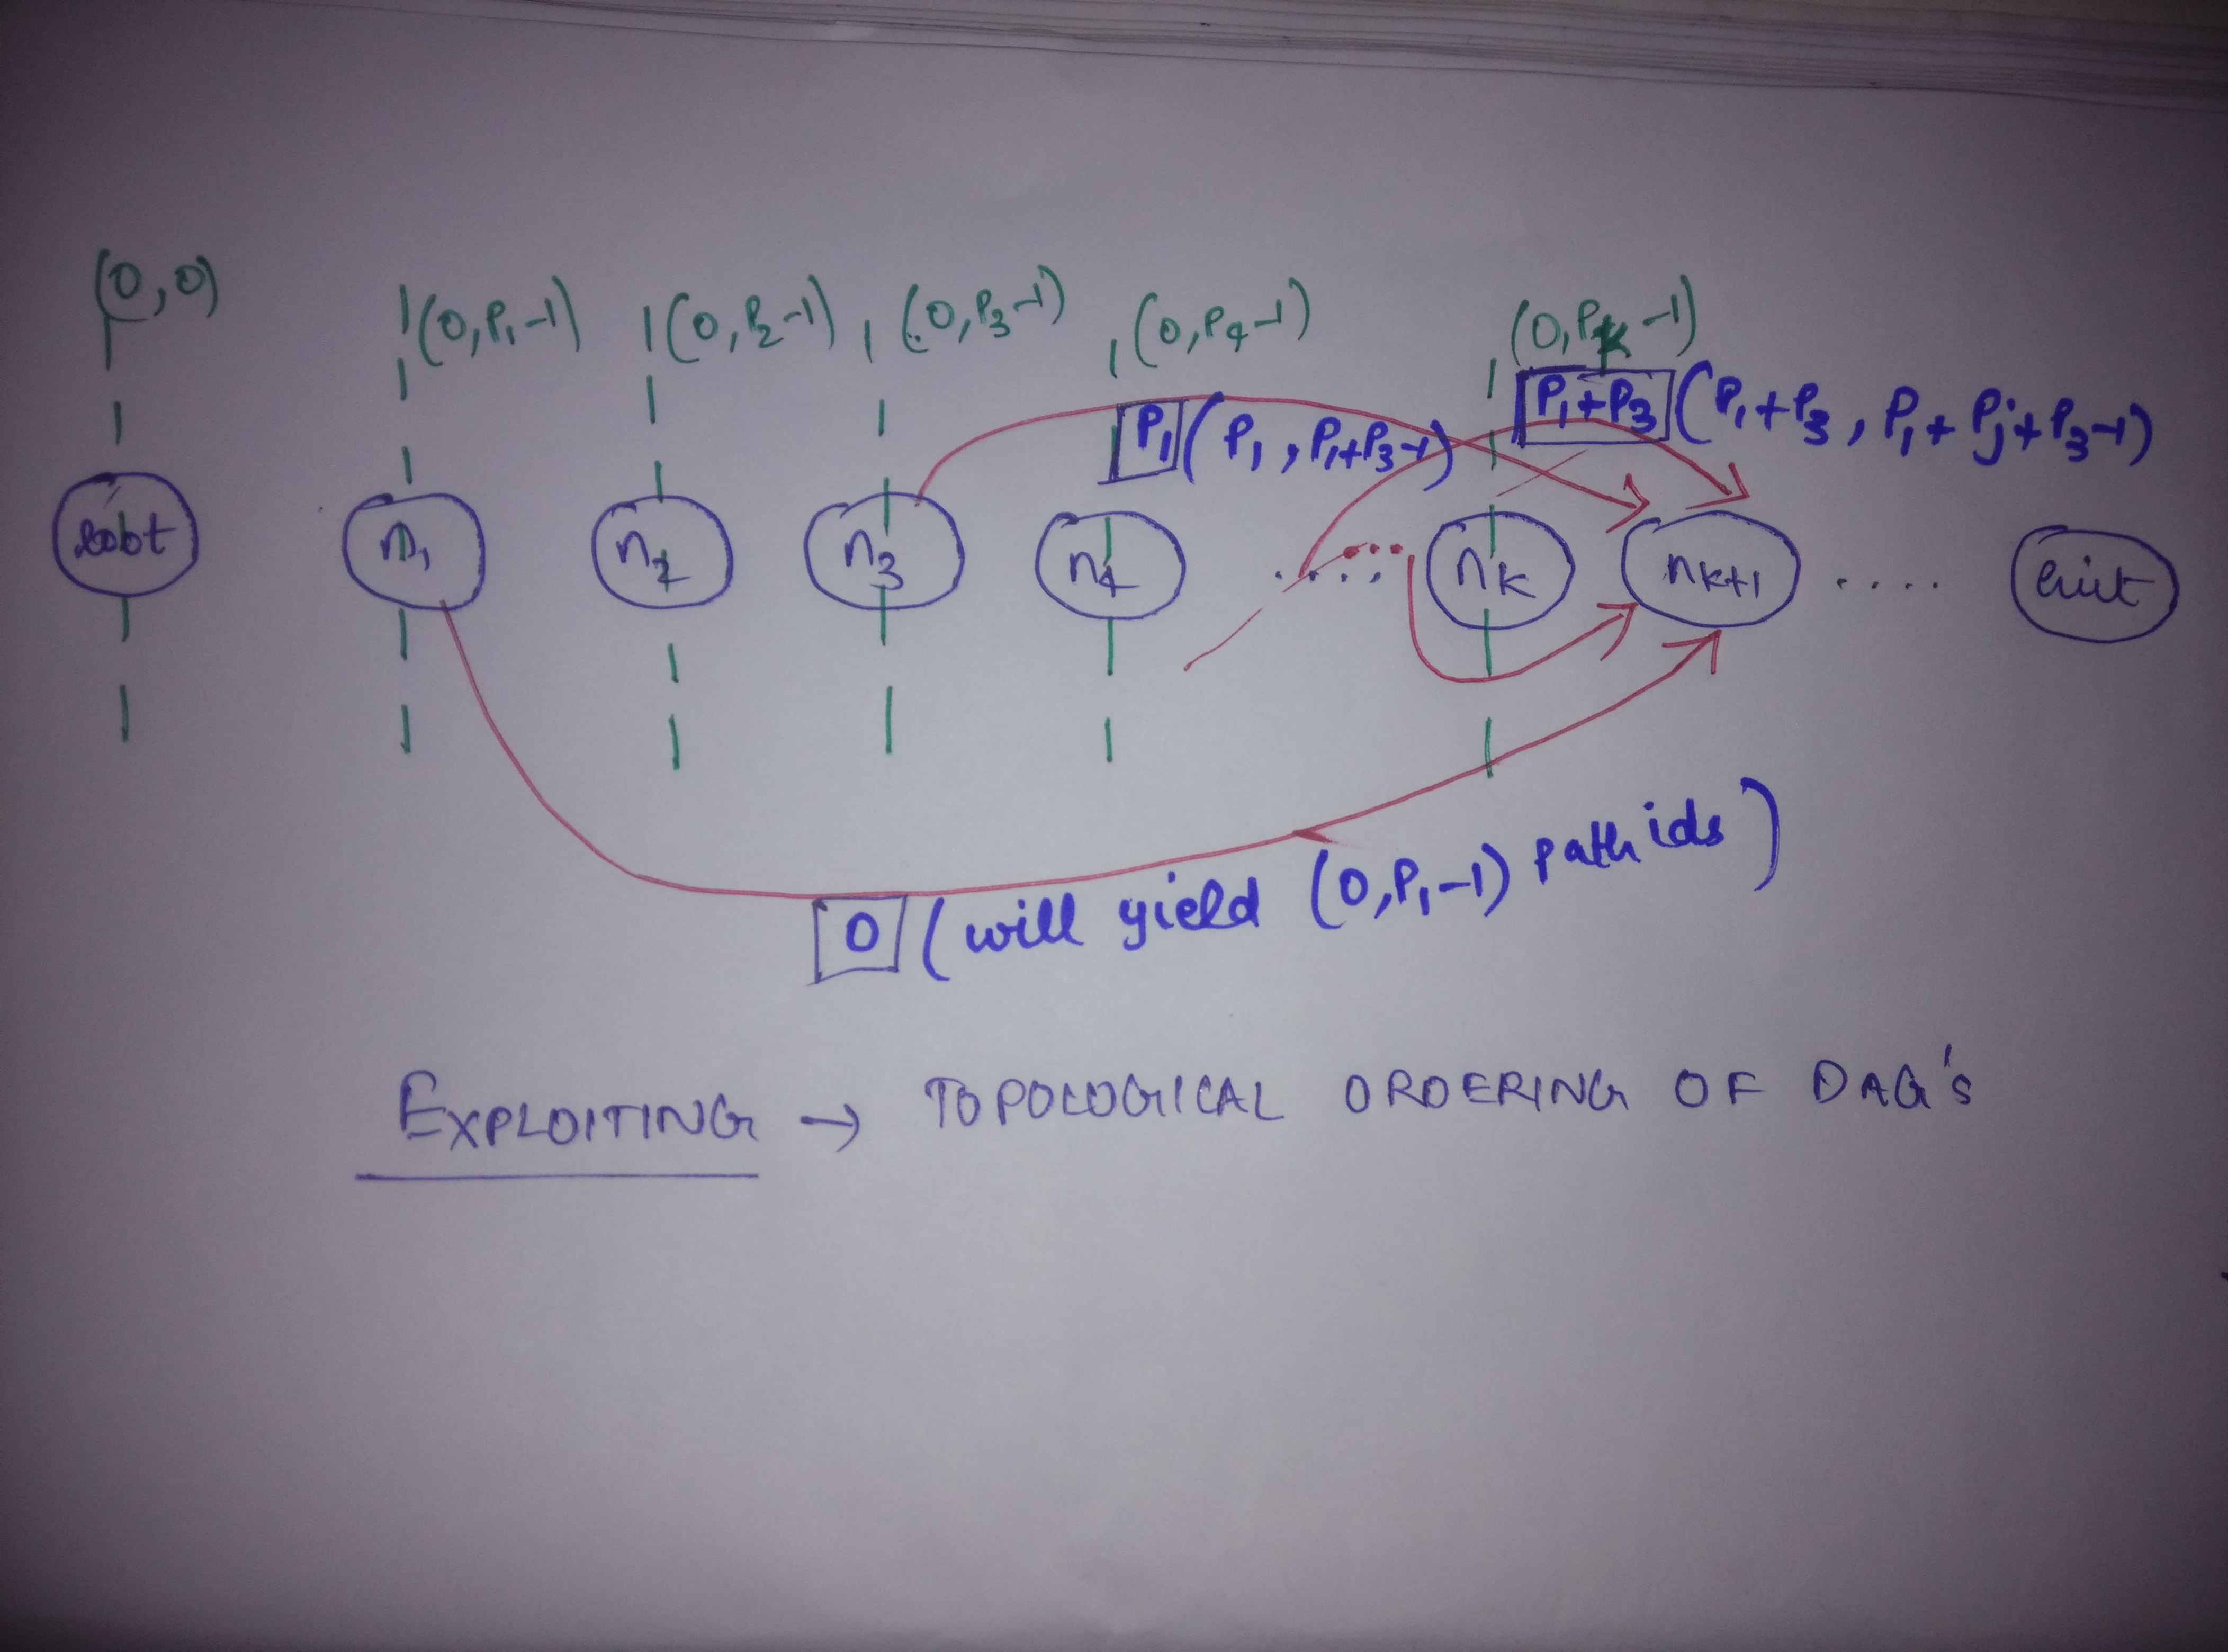 (0,0)
(0,P₁-1) (0,P₂-1) (0,P₃-1) (0,P₄-1) (0,Pₖ-1)
P₁ (P₁, P₁+P₃-1) P₁+P₃ (P₁+P₃, P₁+Pⱼ+P₃-1)
root n₁ n₂ n₃ n₄ ..... nₖ nₖ₊₁ ..... exit
0 (will yield (0,P₁-1) path ids)
EXPLOITING → TOPOLOGICAL ORDERING OF DAG's